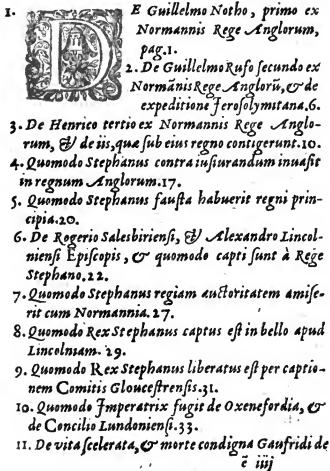 1. DE Guillelmo Notho, primo ex
Normannis Rege Anglorum,
pag.1.
2. De Guillelmo Rufo ſecundo ex
Normãnis Rege Anglorũ, & de
expeditione Jeroſolymitana.6.
3. De Henrico tertio ex Normannis Rege Anglo-
rum, & de iis, quæ ſub eius regno contigerunt.10.
4. Quomodo Stephanus contra iuſiurandum inuaſit
in regnum Anglorum.17.
5. Quomodo Stephanus fauſta habuerit regni prin-
cipia.20.
6. De Rogerio Salesbirienſi, & Alexandro Lincol-
nienſi Epiſcopis, & quomodo capti ſunt à Rege
Stephano.22.
7. Quomodo Stephanus regiam auctoritatem amiſe-
rit cum Normannia.27.
8. Quomodo Rex Stephanus captus eſt in bello apud
Lincolniam. 29.
9. Quomodo Rex Stephanus liberatus eſt per captio-
nem Comitis Gloucestrenſis.31.
10. Quomodo Imperatrix fugit de Oxenefordia, &
de Concilio Lundonienſi.33.
11. De vita ſcelerata, & morte condigna Gaufridi de
ẽ iiij